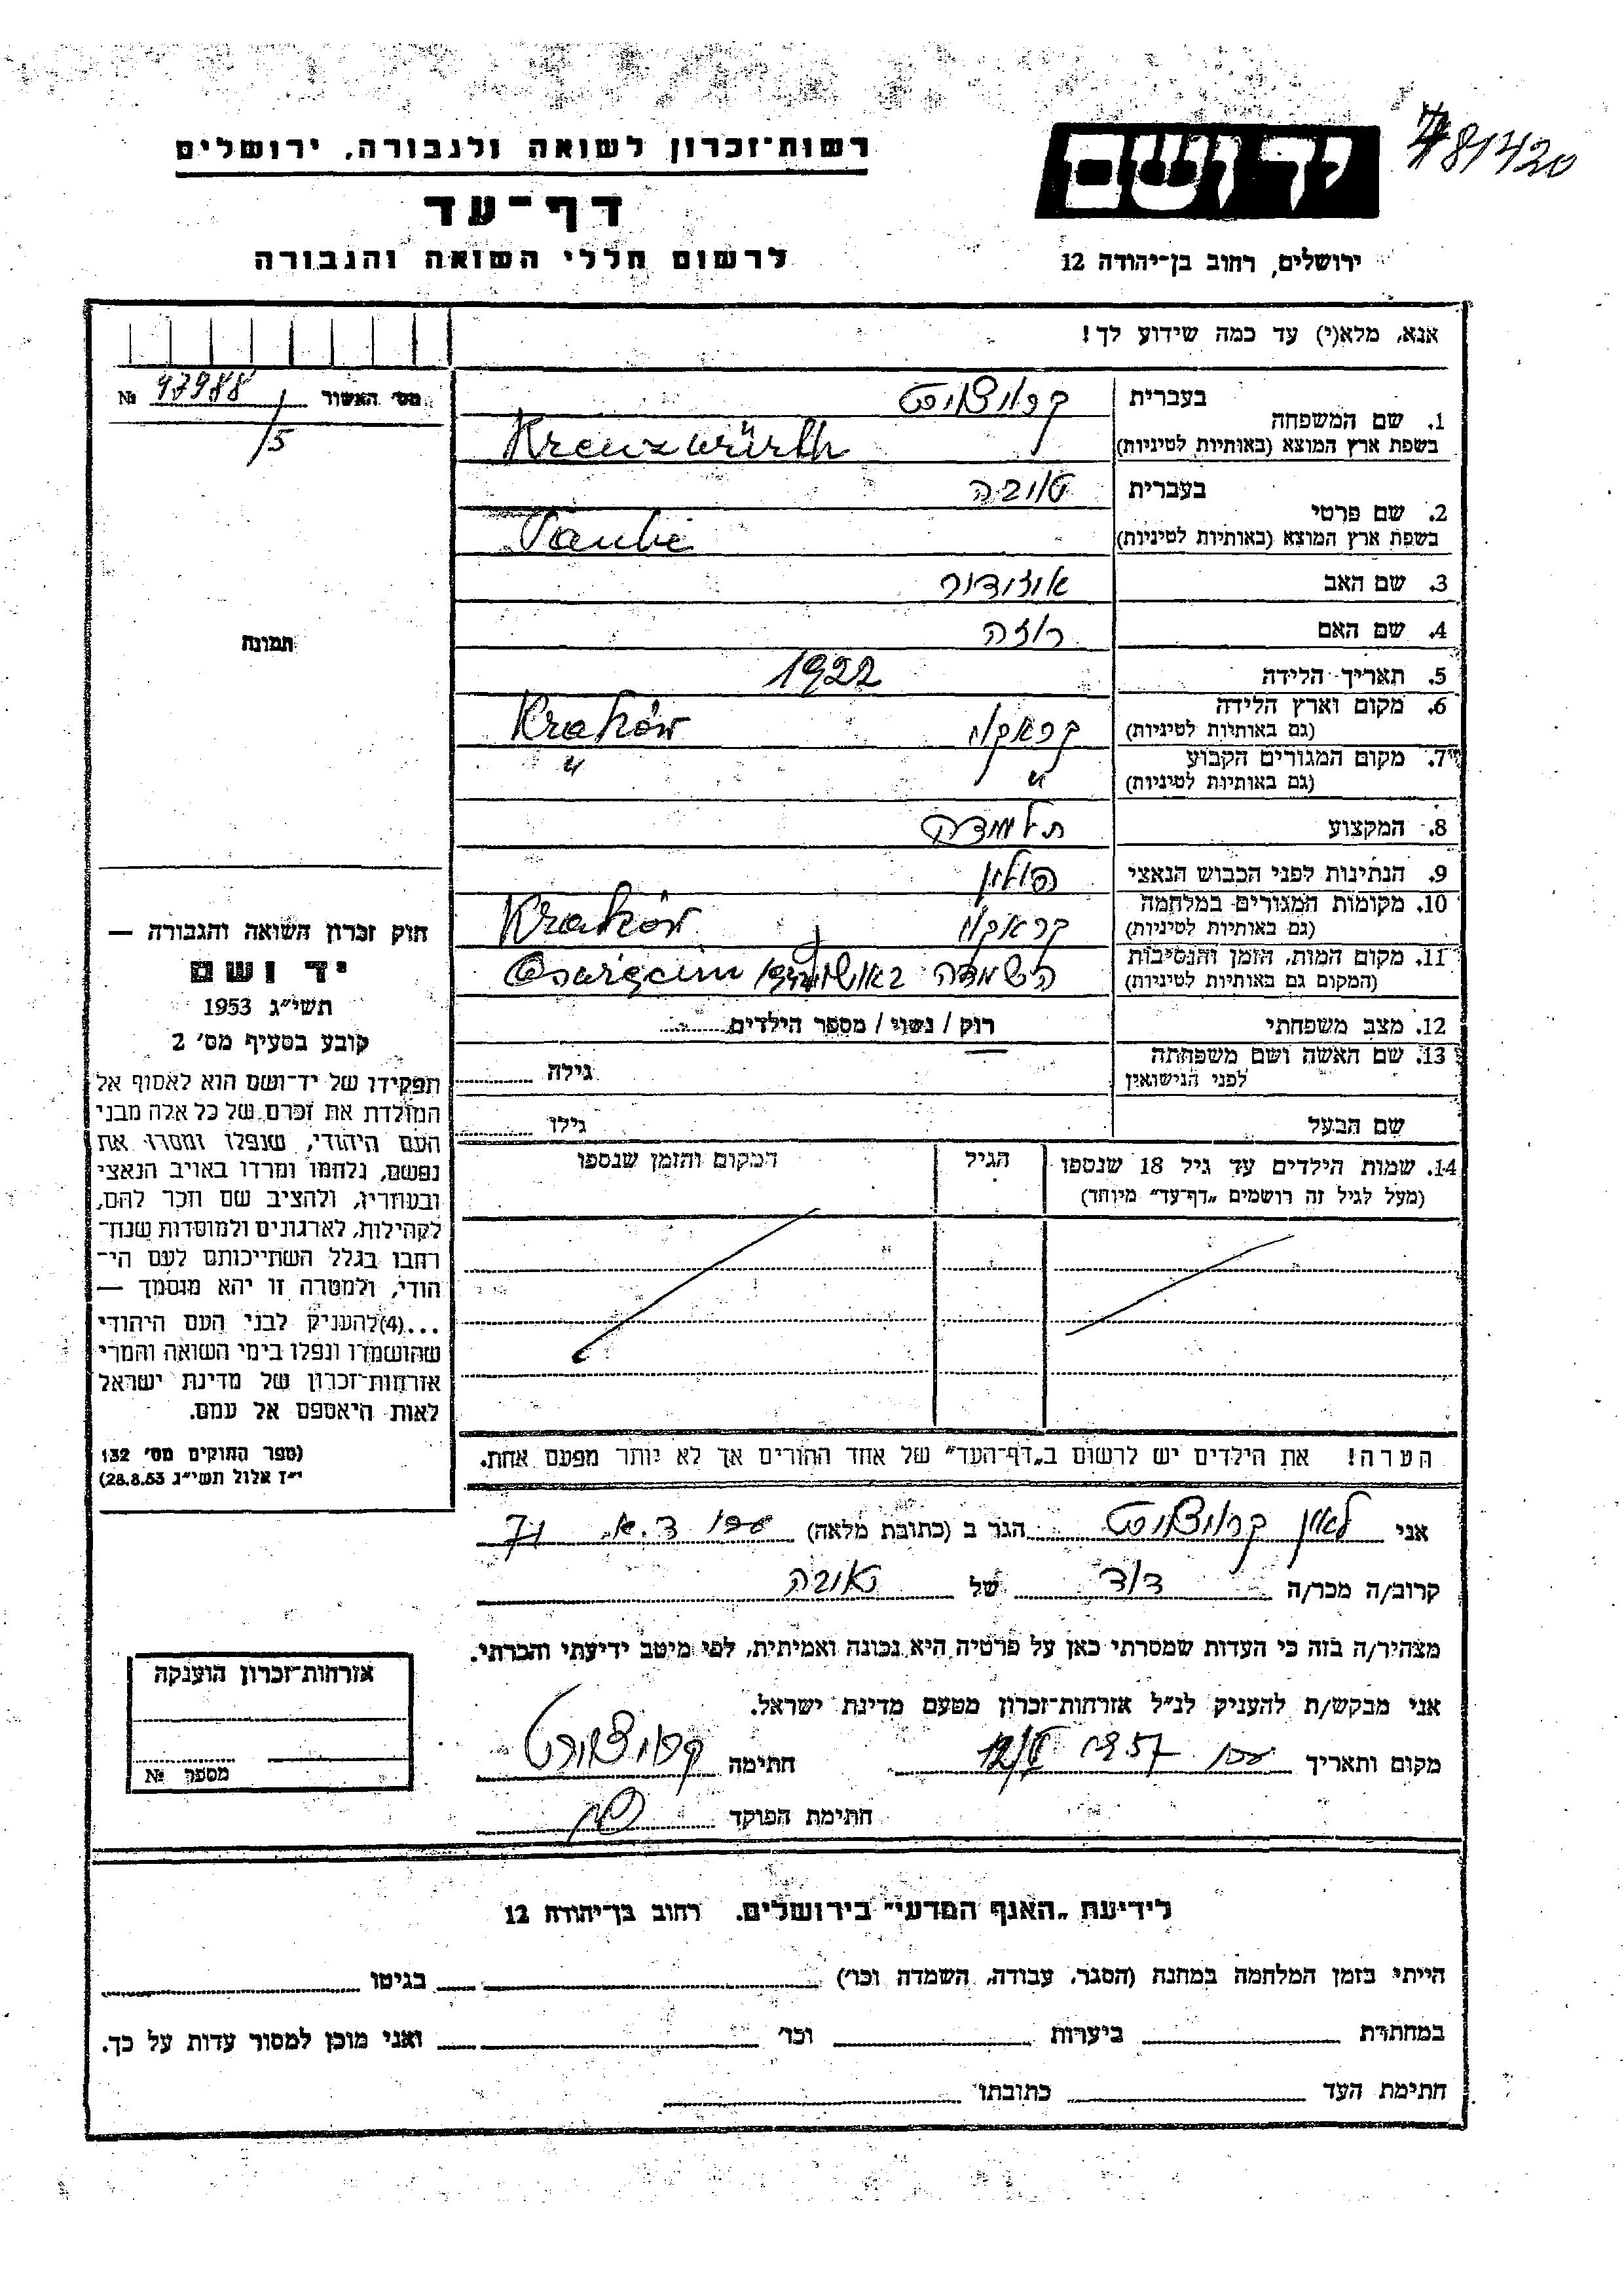 781420
רשות־זכרון לשואה ולגבורה, ירושלים
יד ושם
דף־עד
לרשום חללי השואה והגבורה
ירושלים, רחוב בן־יהודה 12
אנא, מלא(י) עד כמה שידוע לך!
מס׳ האשור 47988 №
/5
1. שם המשפחה
בעברית
בשפת ארץ המוצא (באותיות לטיניות)
Kreuzwürth
2. שם פרטי
בעברית טובה
בשפת ארץ המוצא (באותיות לטיניות) Taube
3. שם האב
4. שם האם רוזה
5. תאריך הלידה 1922
6. מקום וארץ הלידה
(גם באותיות לטיניות) קראקוו Kraków
7. מקום המגורים הקבוע
(גם באותיות לטיניות) " "
8. המקצוע תלמידה
9. הנתינות לפני הכבוש הנאצי פולין
10. מקומות המגורים במלחמה
(גם באותיות לטיניות) קראקוו Kraków
11. מקום המות, הזמן והנסיבות
(המקום גם באותיות לטיניות) הושמדה
12. מצב משפחתי רוק / נשוי / מספר הילדים
13. שם האשה ושם משפחתה
לפני הנישואין
גילה
שם הבעל גילו
14. שמות הילדים עד גיל 18 שנספו
(מעל לגיל זה רושמים „דף־עד״ מיוחד)
הגיל
המקום והזמן שנספו
תמונה
חוק זכרון השואה והגבורה —
יד ושם
תשי״ג 1953
קובע בסעיף מס׳ 2
תפקידו של יד־ושם הוא לאסוף אל
המולדת את זכרם של כל אלה מבני
העם היהודי, שנפלו ומסרו את
נפשם, נלחמו ומרדו באויב הנאצי
ובעוזריו, ולהציב שם וזכר להם,
לקהילות, לארגונים ולמוסדות שנח־
רבו בגלל השתייכותם לעם הי־
הודי, ולמטרה זו יהא מוסמך —
...(4) להעניק לבני העם היהודי
שהושמדו ונפלו בימי השואה והמרי
אזרחות־זכרון של מדינת ישראל
לאות היאספם אל עמם.
(ספר החוקים מס׳ 132
י״ז אלול תשי״ג 28.8.53)
הערה! את הילדים יש לרשום ב„דף־העד״ של אחד ההורים אך לא יותר מפעם אחת.
אני לאון הגר ב (כתובת מלאה)
קרוב/ה מכר/ה דוד של טובה
מצהיר/ה בזה כי העדות שמסרתי כאן על פרטיה היא נכונה ואמיתית, לפי מיטב ידיעתי והכרתי.
אני מבקש/ת להעניק לנ״ל אזרחות־זכרון מטעם מדינת ישראל.
מקום ותאריך 1957 חתימה
חתימת הפוקד
אזרחות־זכרון הוענקה
מספר №
לידיעת „האגף המדעי״ בירושלים. רחוב בן־יהודה 12
הייתי בזמן המלחמה במחנה (הסגר, עבודה, השמדה וכו׳) בגיטו
במחתרת ביערות וכו׳ ואני מוכן למסור עדות על כך.
חתימת העד כתובתו